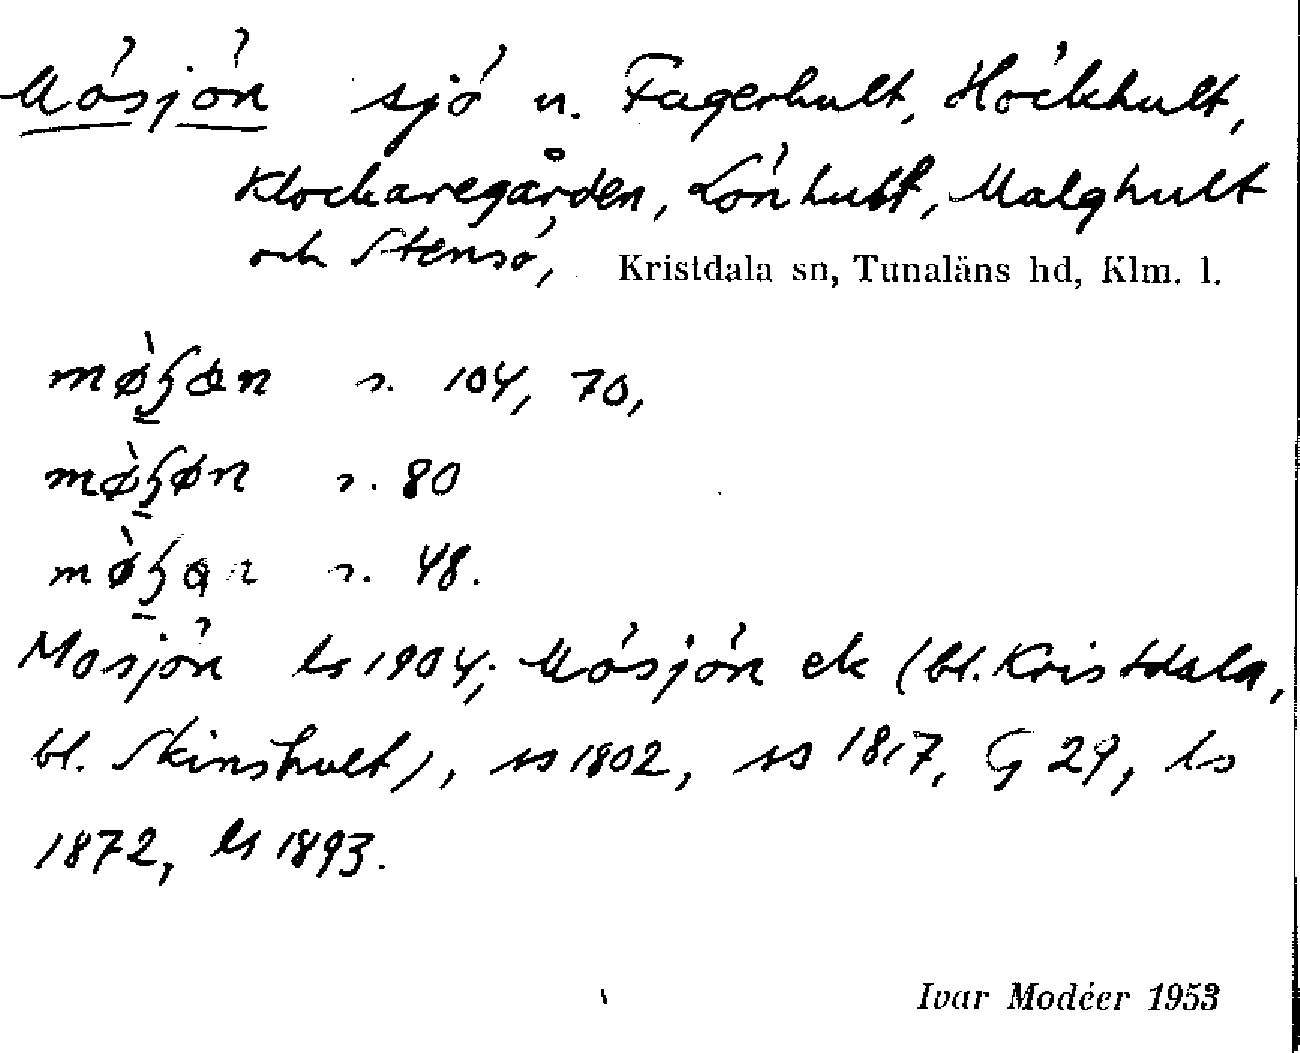 Mösjön sjö u. Fagerhult, Höckhult,
Klockaregården, Lönhult, Malghult
och Stensö, Kristdala sn, Tunaläns hd, Klm. l.
s. 104, 70,
s. 80
s. 48.
Mosjön ls 1904; Mösjön ek (bl. Kristdala,
bl. Skinshult), ss 1802, ss 1817, G 29, ls
1872, ls 1893.
Ivar Modéer 1953